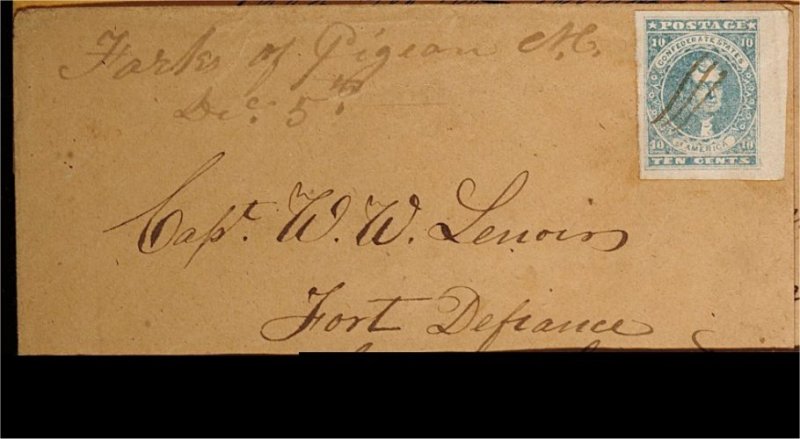 Forks of Pigeon N.C.
Dec. 5th
POSTAGE
10 10
CONFEDERATE STATES
OF AMERICA
10 10
TEN CENTS
Capt. W. W. Lenoir
Fort Defiance